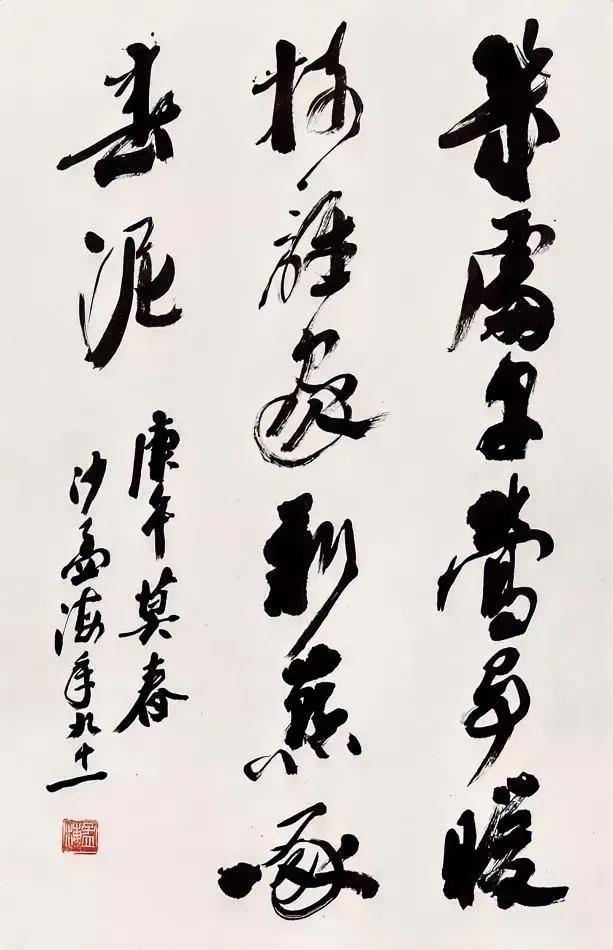 幾處早鶯争暖
樹誰家新燕啄
春泥
庚午莫春
沙孟海年九十一
孟海